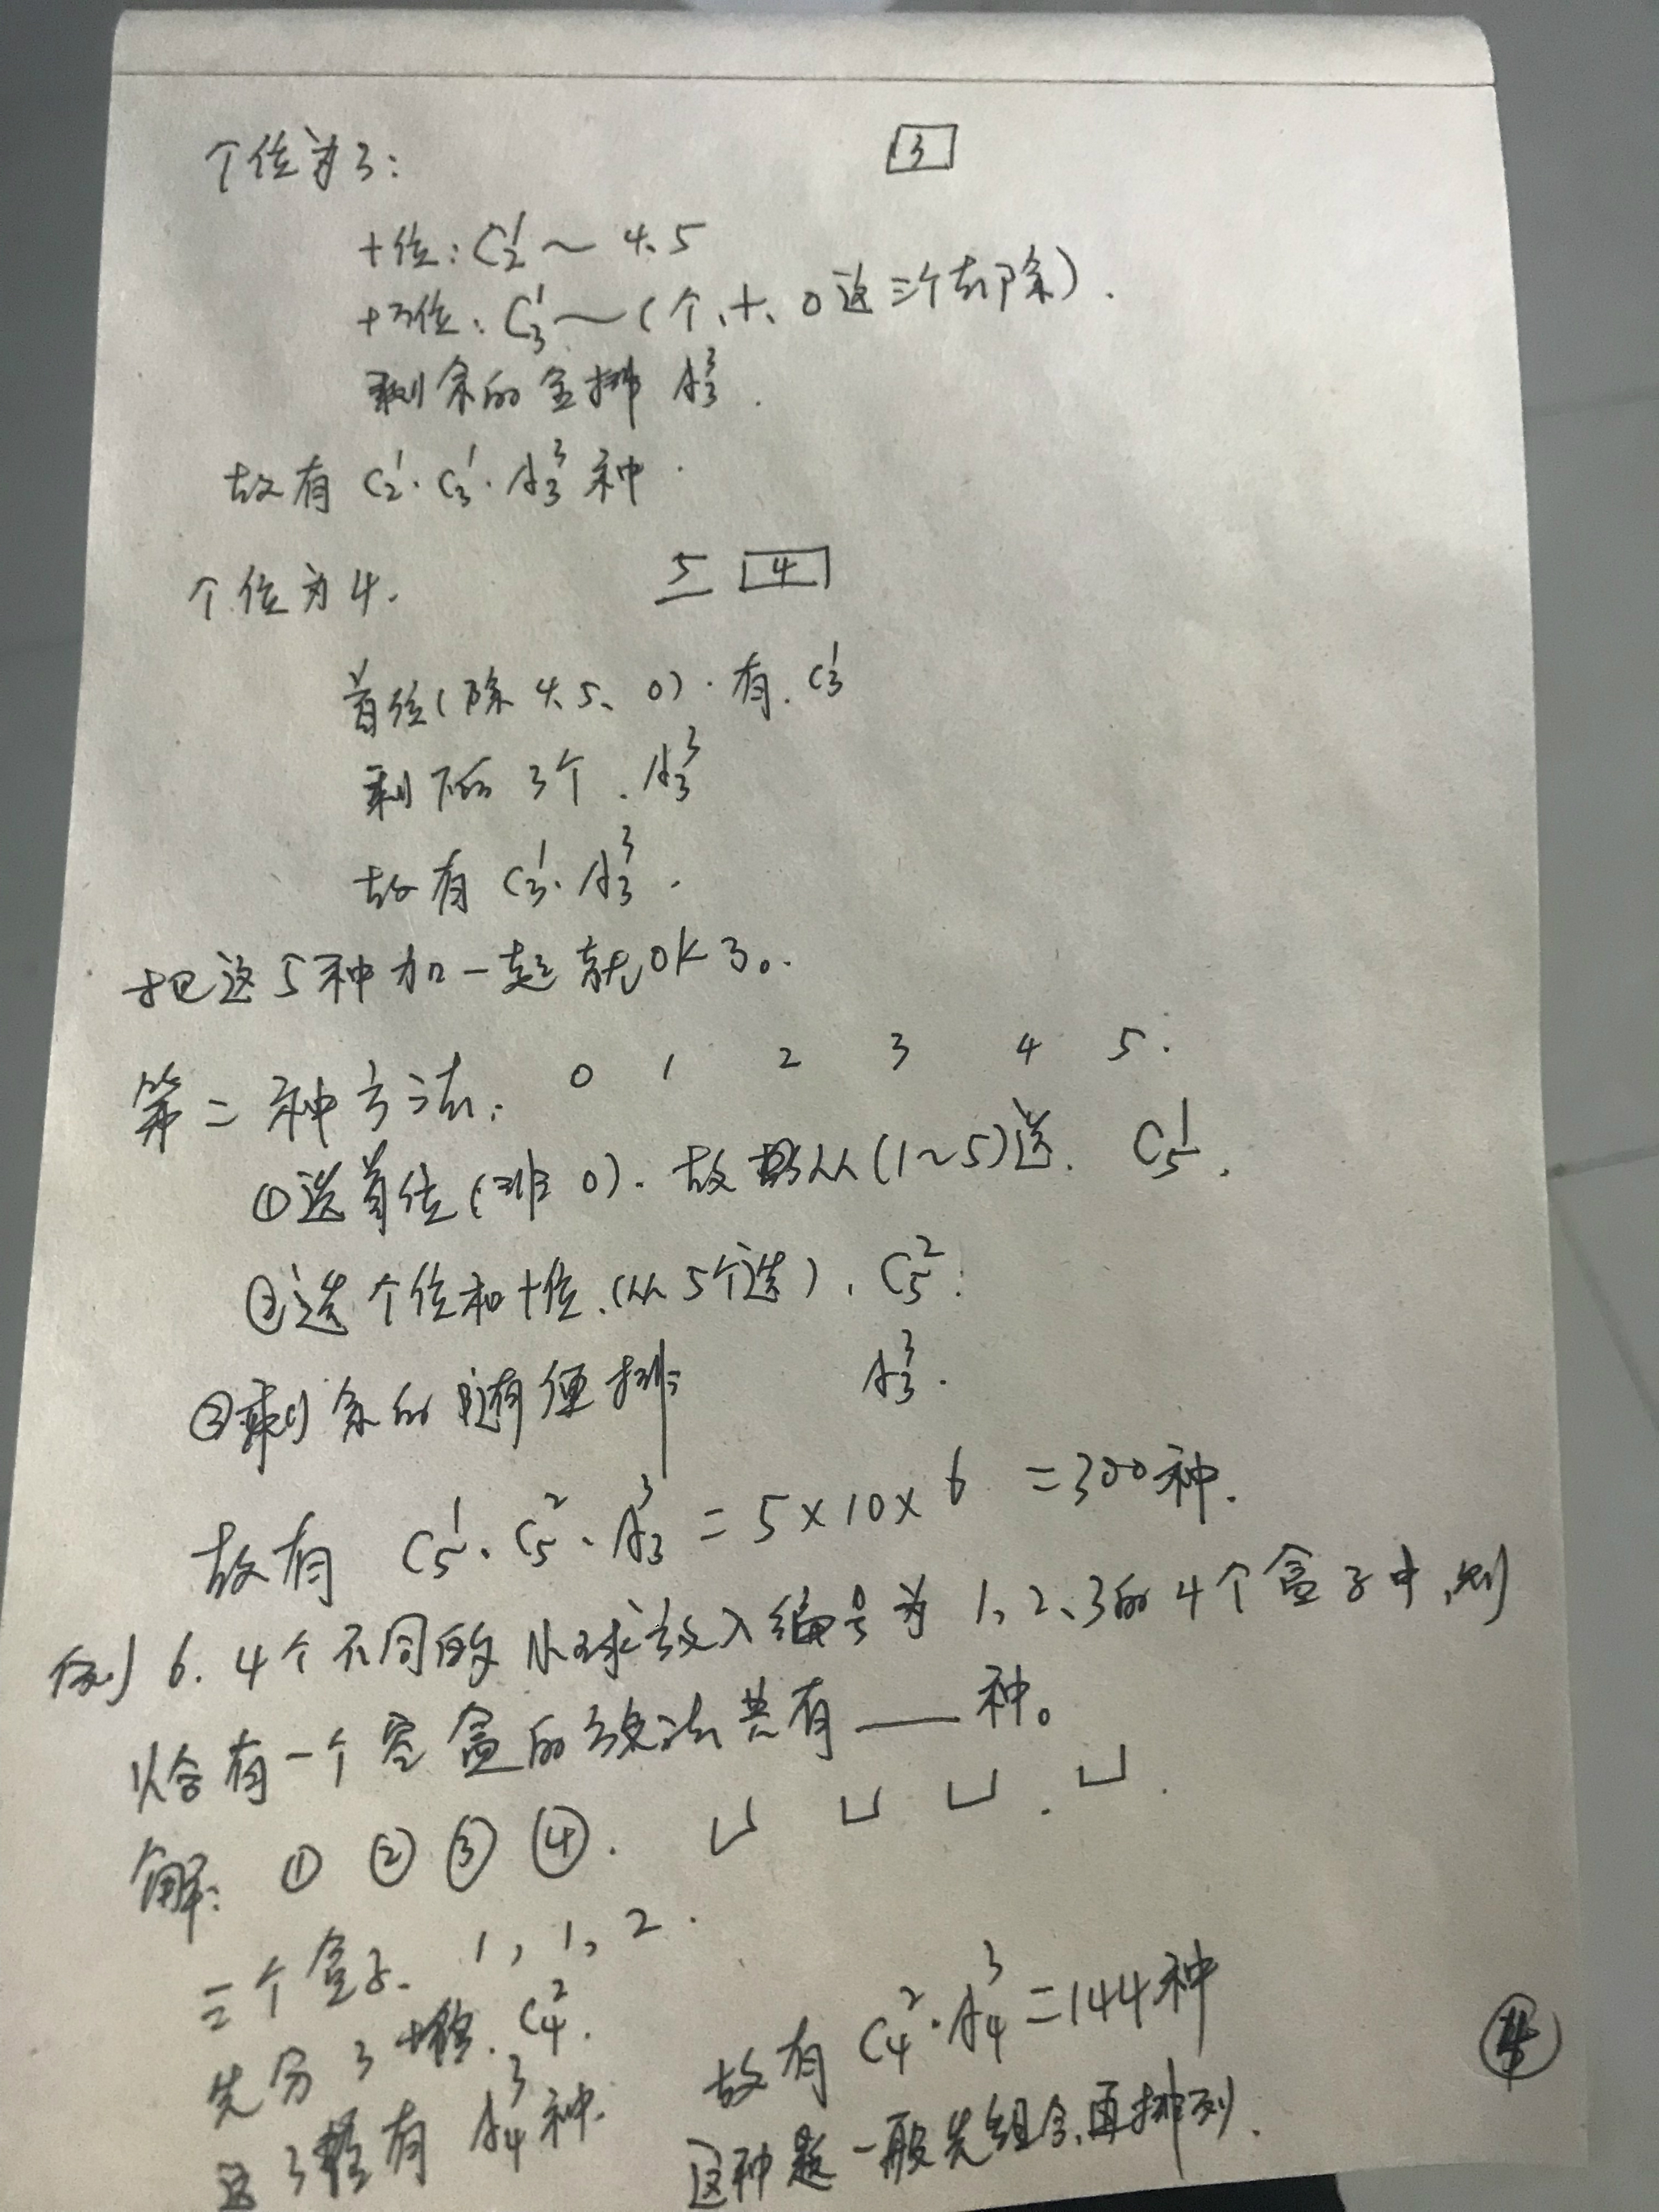 个位为3:
3
十位: C₂¹ ~ 4.5
十万位: C₃¹ ~ (个、十、0这三个都除).
剩余的全排 A₃³.
故有 C₂¹·C₃¹·A₃³ 种.
个位为4. 5 4
首位(除4.5、0). 有. C₃¹
剩下的3个. A₃³
故有 C₃¹·A₃³.
把这5种加一起就OK了。
第二种方法: 0 1 2 3 4 5.
①选首位(非0). 故从(1~5)选. C₅¹.
②选个位和十位.(从5个选). C₅².
③剩余的随便排 A₃³.
故有 C₅¹·C₅²·A₃³ = 5×10×6 = 300种.
例6. 4个不同的小球放入编号为1、2、3的4个盒子中,则
恰有一个空盒的放法共有____种。
解: ① ② ③ ④.
三个盒子. 1, 1, 2.
先分3堆. C₄². 故有 C₄²·A₄³=144种
这种题一般先组合再排列.